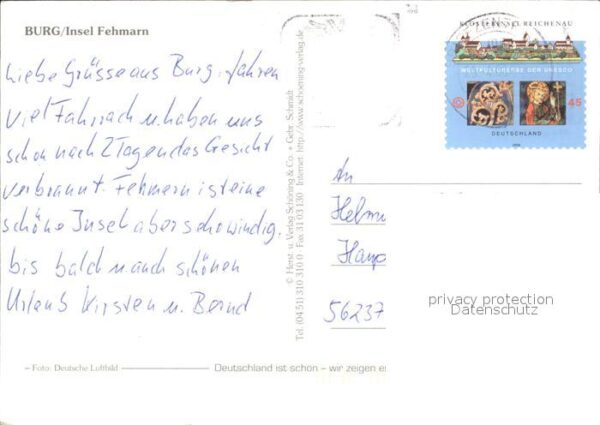 BURG/Insel Fehmarn
Liebe Grüsse aus Burg. fahren
viel Fahrrad u. haben uns
schon nach 2 Tagen das Gesicht
verbrannt. Fehmern ist eine
schöne Insel aber so windig.
bis bald u. auch schönen
Urlaub Kirsten u. Bernd
– Foto: Deutsche Luftbild
Deutschland ist schön – wir zeigen es
© Herst. u. Verlag Schöning & Co. + Gebr. Schmidt
Tel. (04 51) 310 310 0 · Fax 31 03 130 · Internet: http://www.schoening-verlag.de
KLOSTERINSEL REICHENAU
WELTKULTURERBE DER UNESCO
45
DEUTSCHLAND
2008
An
Helmu
Haup
56237
privacy protection
Datenschutz